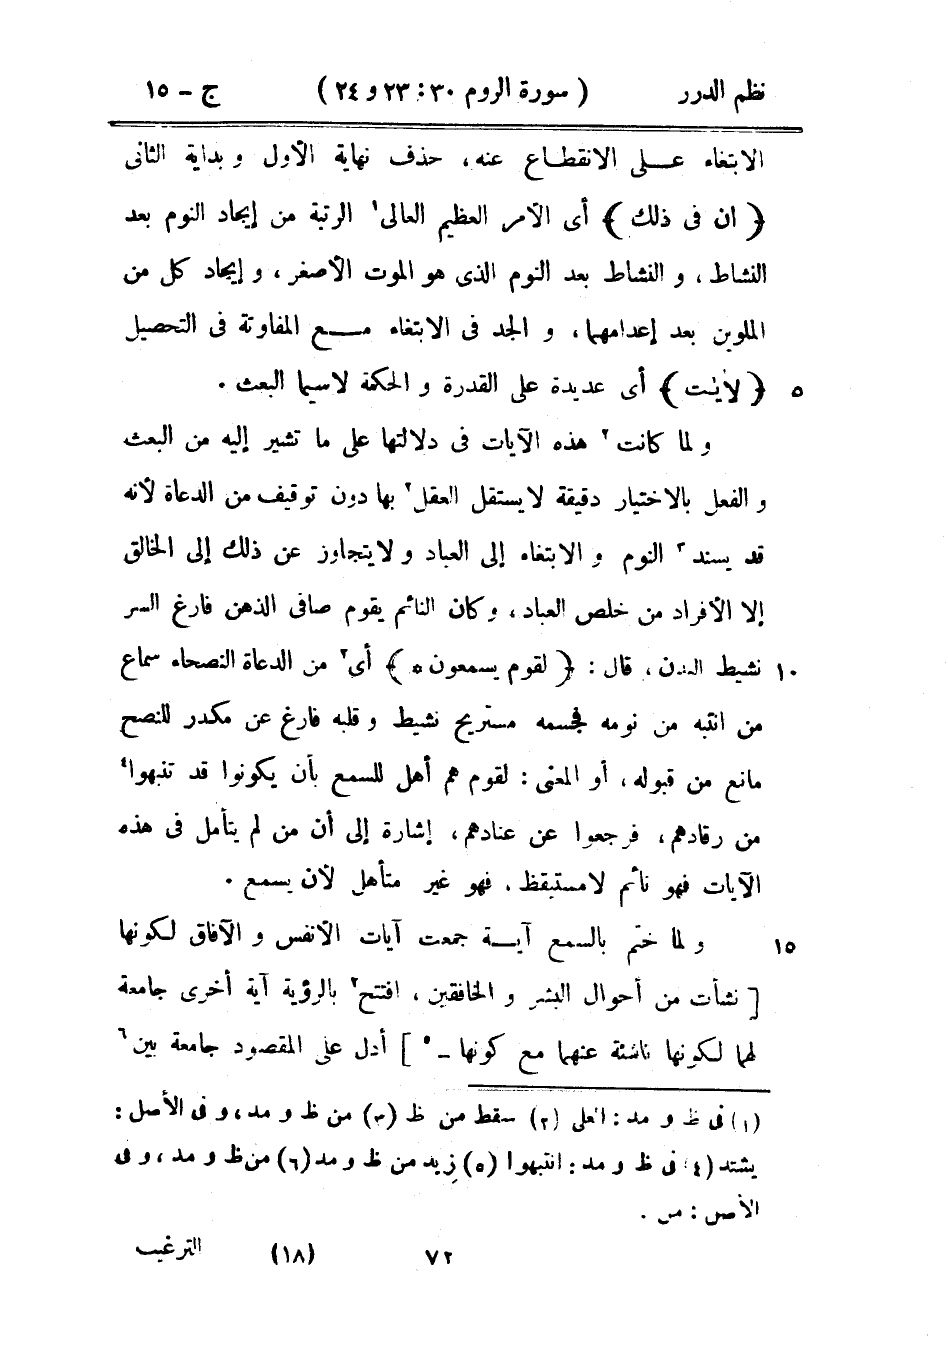 نظم الدرر ( سورة الروم ٣٠ : ٢٣ و ٢٤ ) ج - ١٥
الابتغاء على الانقطاع عنه، حذف نهاية الأول و بداية الثانى
﴿ ان فى ذلك ﴾ أى الأمر العظيم العالى١ الرتبة من إيجاد النوم بعد
النشاط، و النشاط بعد النوم الذى هو الموت الأصغر، و إيجاد كل من
الملوين بعد إعدامهما، و الجد فى الابتغاء مع المفاوتة فى التحصيل
٥ ﴿ لأيٰت ﴾ أى عديدة على القدرة و الحكمة لاسيما البعث .
و لما كانت٢ هذه الآيات فى دلالتها على ما تشير إليه من البعث
و الفعل بالاختيار دقيقة لايستقل العقل٢ بها دون توقيف من الدعاة لأنه
قد يسند٣ النوم و الابتغاء إلى العباد و لايتجاوز عن ذلك إلى الخالق
إلا الأفراد من خلص العباد، و كان النائم يقوم صافى الذهن فارغ السر
١٠ نشيط البدن، قال : ﴿ لقوم يسمعون ه ﴾ أى٢ من الدعاة النصحاء سماع
من انتبه من نومه فجسمه مستريح نشيط و قلبه فارغ عن مكدر للنصح
مانع من قبوله، أو المعنى : لقوم هم أهل للسمع بأن يكونوا قد تنبهوا٤
من رقادهم، فرجعوا عن عنادهم، إشارة إلى أن من لم يتأمل فى هذه
الآيات فهو نائم لامستيقظ، فهو غير متأهل لأن يسمع .
١٥ و لما ختم بالسمع آية جمعت آيات الأنفس و الآفاق لكونها
[ نشأت من أحوال البشر و الخافقين، افتتح٢ بالرؤية آية أخرى جامعة
لهما لكونها ناشئة عنهما مع كونها -٥ ] أدل على المقصود جامعة بين٦
(١) فى ظ و مد : العلى (٢) سقط من ظ (٣) من ظ و مد، و فى الأصل :
يشتد (٤) فى ظ و مد : انتبهوا (٥) زيد من ظ و مد (٦) من ظ و مد، و فى
الأصل : من .
٧٢ (١٨) الترغيب